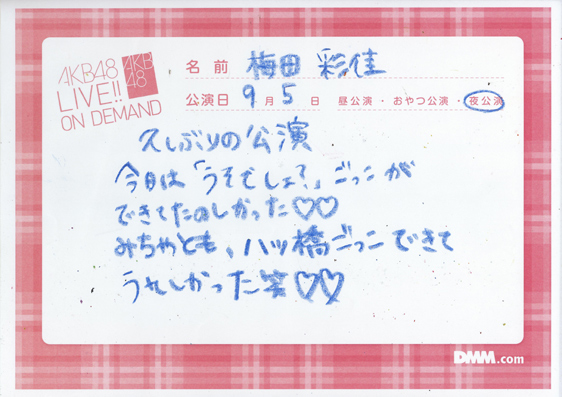 AKB48
LIVE!!
ON DEMAND
AKB
48
名前 梅田 彩佳
公演日 9月5日 昼公演・おやつ公演・夜公演
久しぶりの公演
今日は「うそでしょ?」ごっこが
できてたのしかった♡♡
みちゃとも、八ッ橋ごっこできて
うれしかった笑♡♡
DMM.com